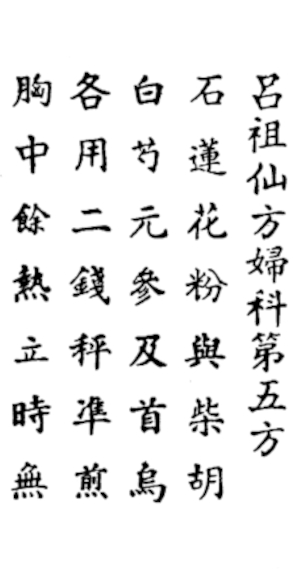 呂祖仙方婦科第五方
石蓮花粉與柴胡
白芍元參及首烏
各用二錢秤準煎
胸中餘熱立時無